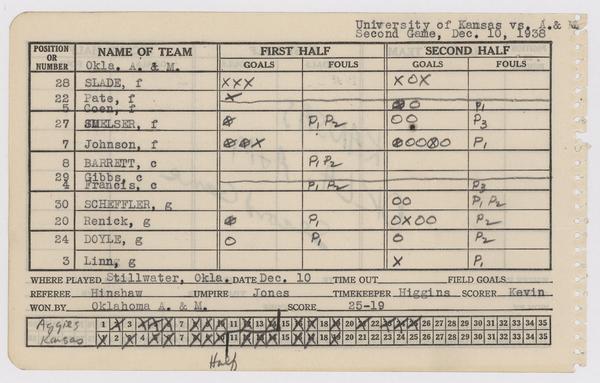 University of Kansas vs. A.& M.
Second Game, Dec. 10, 1938
POSITION OR NUMBER NAME OF TEAM FIRST HALF SECOND HALF
Okla. A. & M. GOALS FOULS GOALS FOULS
28 SLADE, f XXX XOX
22 Pate, f X
5 Coen, f O P1
27 SMELSER, f P1 P2 OO P3
7 Johnson, f X P1
8 BARRETT, c P1 P2
29 Gibbs, c
4 Francis, c P1 P2 P3
30 SCHEFFLER, g OO P1 P2
20 Renick, g P1 OXOO P2
24 DOYLE, g O P1 O P2
3 Linn, g X P1
WHERE PLAYED Stillwater, Okla. DATE Dec. 10 TIME OUT FIELD GOALS
REFEREE Hinshaw UMPIRE Jones TIMEKEEPER Higgins SCORER Kevin
WON BY Oklahoma A. & M. SCORE 25-19
Aggies 1 2 3 4 5 6 7 8 9 10 11 12 13 14 15 16 17 18 19 20 21 22 23 24 25 26 27 28 29 30 31 32 33 34 35
Kansas 1 2 3 4 5 6 7 8 9 10 11 12 13 14 15 16 17 18 19 20 21 22 23 24 25 26 27 28 29 30 31 32 33 34 35
Half